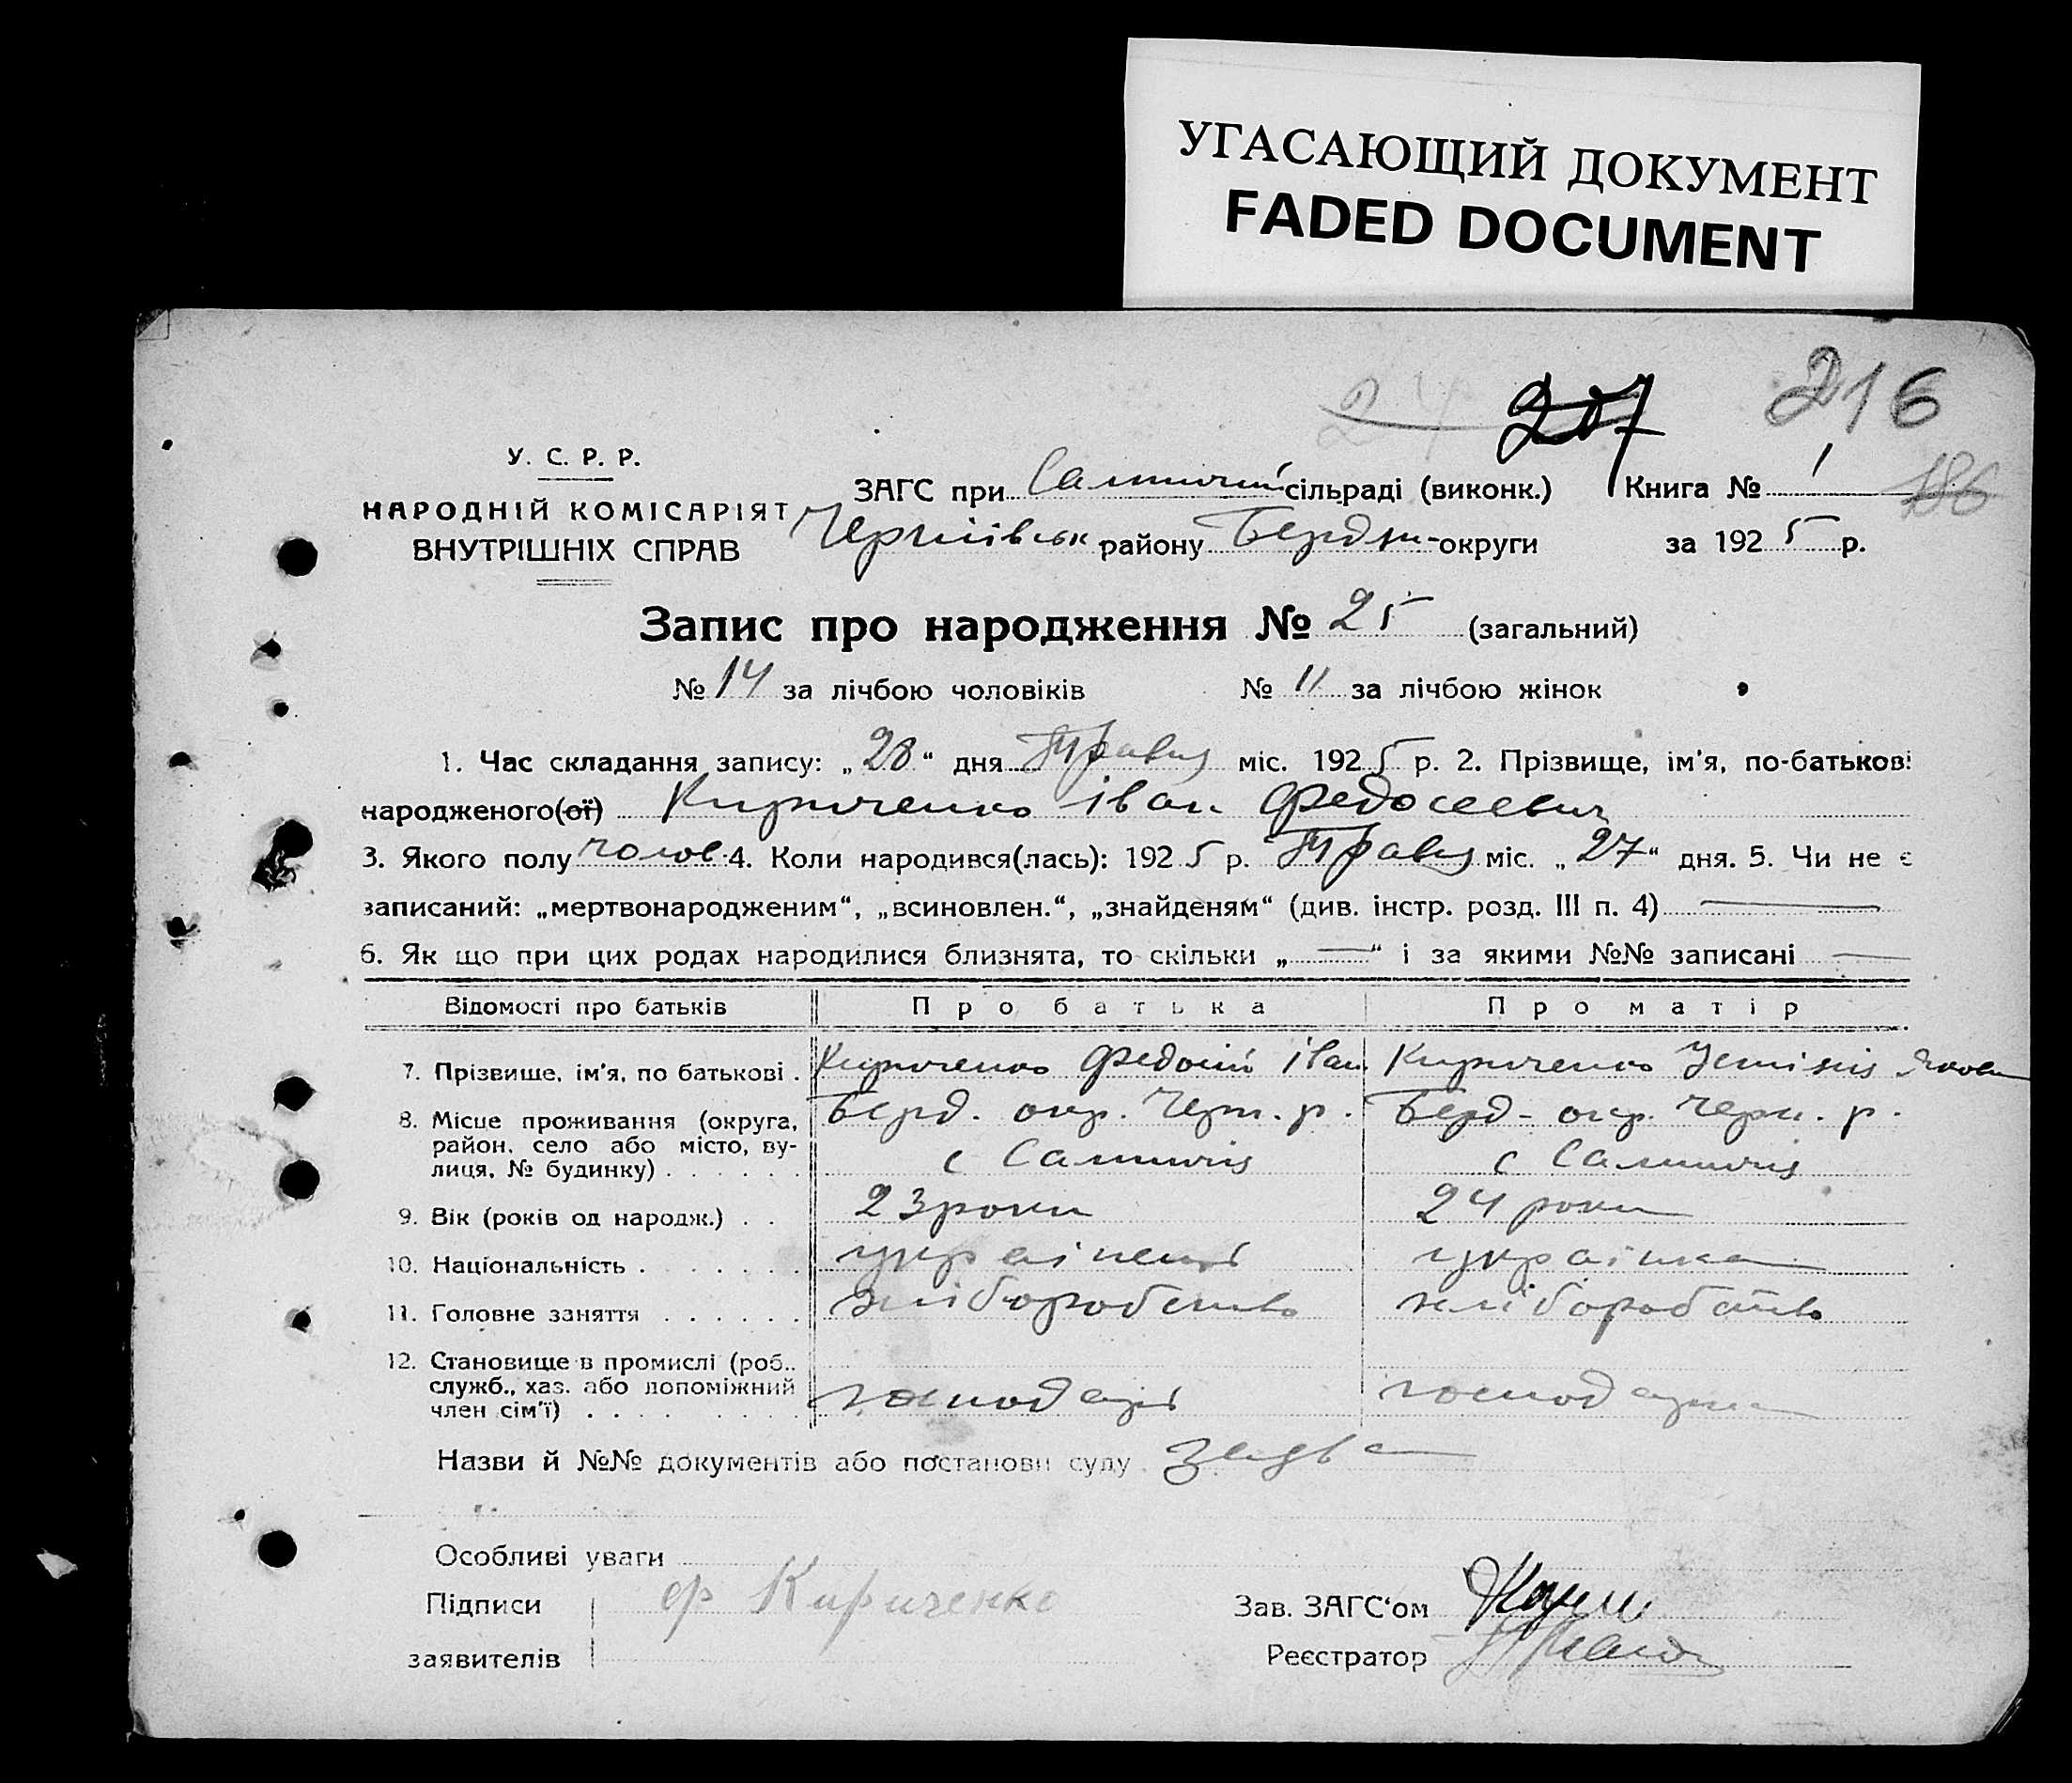 УГАСАЮЩИЙ ДОКУМЕНТ
FADED DOCUMENT
24 207 216
186
У. С. Р. Р.
НАРОДНІЙ КОМІСАРІЯТ
ВНУТРІШНІХ СПРАВ
ЗАГС при сільраді (виконк.) Книга № 1
району Бердян- округи за 1925 р.
Запис про народження № 25 (загальний)
№ 14 за лічбою чоловіків № 11 за лічбою жінок
1. Час складання запису: „28“ дня Травня міс. 1925 р. 2. Прізвище, ім'я, по-батькові
народженого(ої) Кириченко Іван Федосеевич
3. Якого полу чолов. 4. Коли народився(лась): 1925 р. Травня міс. „27“ дня. 5. Чи не є
записаний: „мертвонародженим“, „всиновлен.“, „знайденям“ (див. інстр. розд. III п. 4)
6. Як що при цих родах народилися близнята, то скільки „—“ і за якими №№ записані —
Відомості про батьків Про батька Про матір
7. Прізвище, ім'я, по батькові . Кириченко Федосій Іван. Кириченко Устінія Яковл
8. Місце проживання (округа, район, село або місто, вулиця, № будинку) . Берд. окр. Черн. р. Берд- окр. Черн. р.
с с
9. Вік (років од народж.) . . 23 роки 24 роки
10. Національність . українець українка
11. Головне заняття . хліборобство хліборобство
12. Становище в промислі (роб.. служб., хаз. або допоміжний член сім'ї) . господарь господарка
Назви й №№ документів або постанови суду заява
Особливі уваги
Підписи ф Кириченко Зав. ЗАГС'ом
заявителів Реєстратор